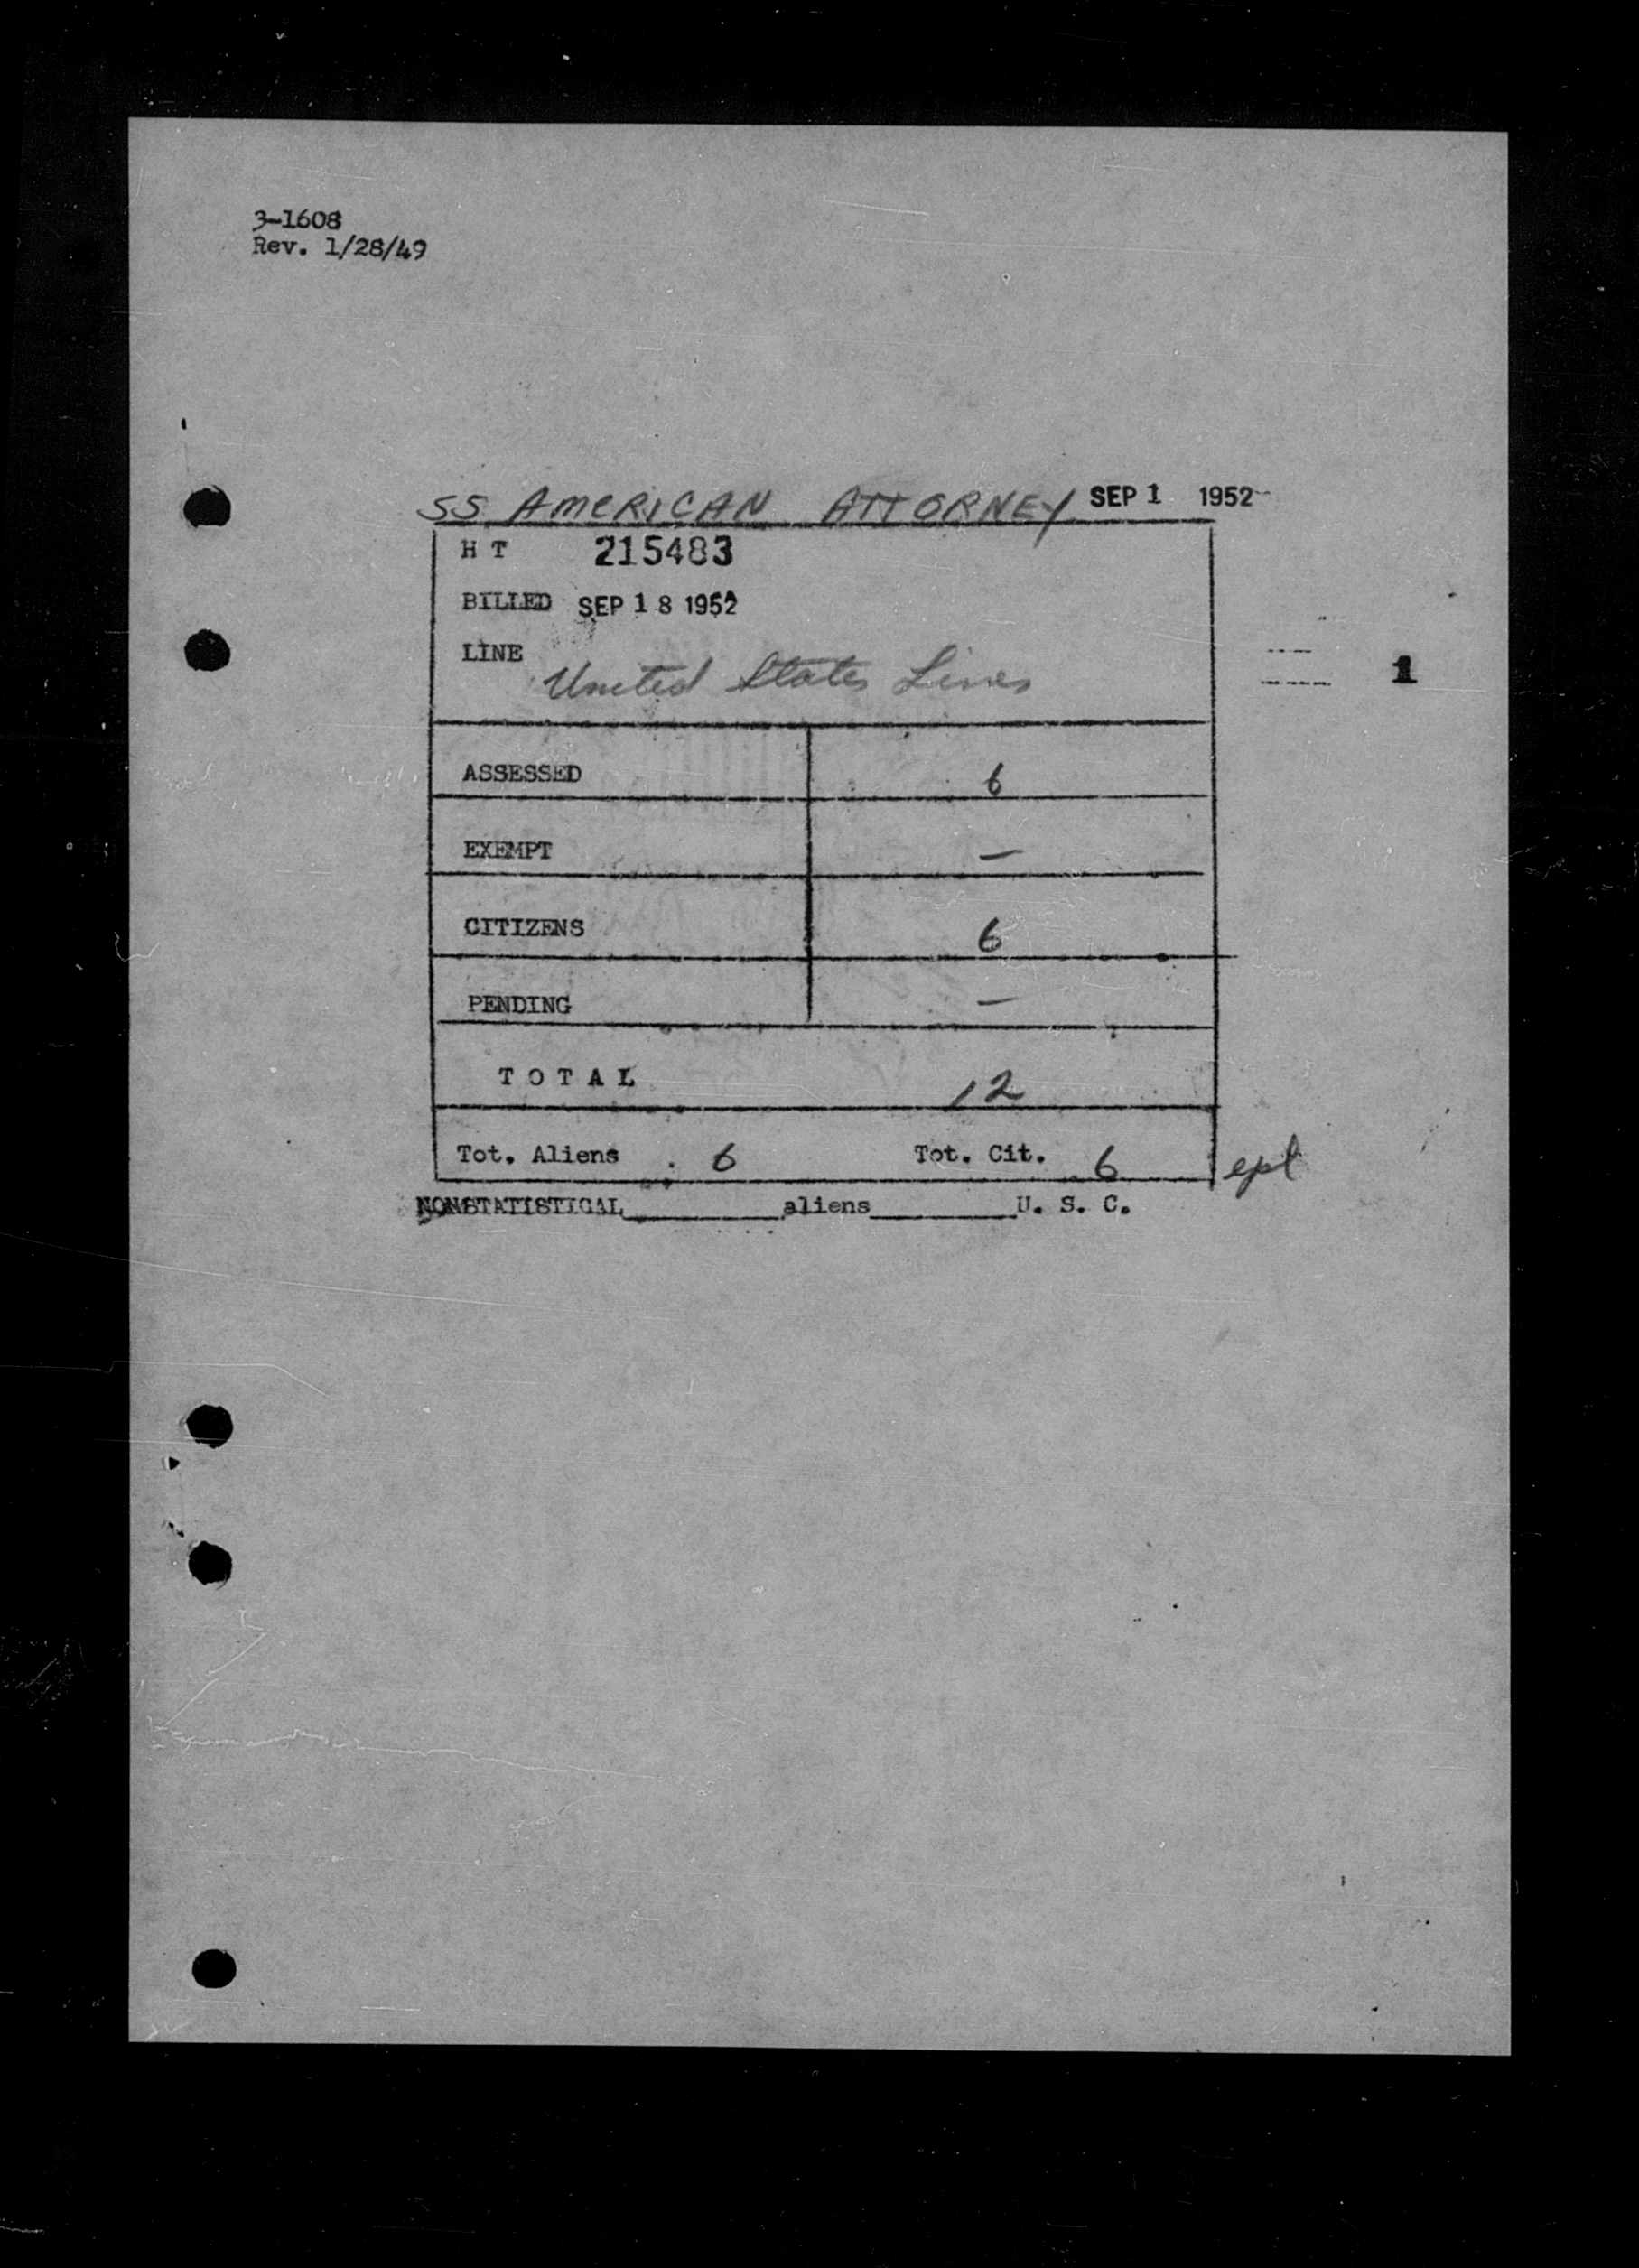 3-1608
Rev. 1/28/49
SS AMERICAN ATTORNEY SEP 1 1952
H T 215483
BILLED SEP 18 1952
LINE
United States Lines
1
ASSESSED 6
EXEMPT —
CITIZENS 6
PENDING —
T O T A L 12
Tot. Aliens 6 Tot. Cit. 6
NONSTATISTICAL________aliens________U. S. C.